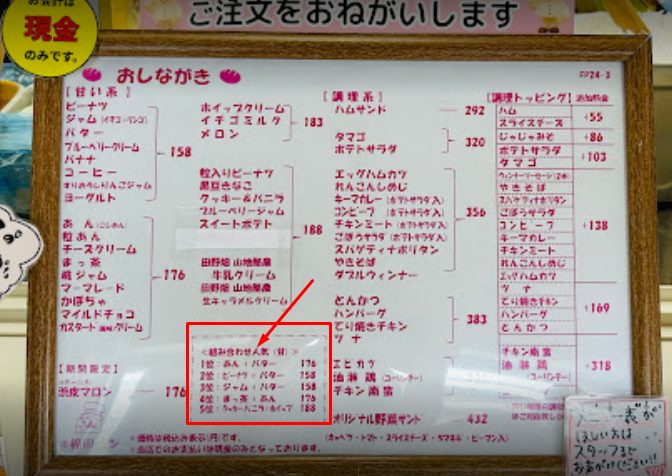 ご注文をおねがいします
現金
のみです。
おしながき
PP24-3
[甘い系]
ピーナツ
ジャム(イチゴ・リンゴ)
バター
ブルーベリークリーム
バナナ
コーヒー
すりおろしりんごジャム
ヨーグルト
158
あん(こしあん)
粒あん
チーズクリーム
まっ茶
桃ジャム
マーマレード
かぼちゃ
マイルドチョコ
カスタード
176
[期間限定]
渋皮マロン
176
ホイップクリーム
イチゴミルク
メロン
183
粒入りピーナツ
黒豆きなこ
クッキー&バニラ
ブルーベリージャム
スイートポテト
田野畑 山地酪農
牛乳クリーム
田野畑 山地酪農
生キャラメルクリーム
188
<組み合わせ人気(甘)>
1位:あん+バター 176
2位:ピーナツ+バター 158
3位:ジャム+バター 158
4位:まっ茶+あん 176
5位:クッキーバニラ+ホイップ 188
[調理系]
ハムサンド 292
タマゴ
ポテトサラダ
320
エッグハムカツ
れんこんしめじ
キーマカレー(ポテトサラダ入)
コンビーフ(ポテトサラダ入)
チキンミート(ポテトサラダ入)
ごぼうサラダ(ポテトサラダ入)
スパゲティナポリタン
やきそば
ダブルウィンナー
356
とんかつ
ハンバーグ
てり焼きチキン
ツナ
383
エビカツ
油淋鶏(ユーリンチー)
チキン南蛮
オリジナル野菜サンド 432
(キャベツ・トマト・スライスチーズ・タマネギ・ピーマン入)
[調理トッピング] 追加料金
ハム
スライスチーズ
+55
じゃじゃみそ +86
ポテトサラダ
タマゴ
+103
やきそば
スパゲティナポリタン
ごぼうサラダ
コンビーフ
キーマカレー
チキンミート
れんこんしめじ
エッグハムカツ
+138
ツナ
てり焼きチキン
ハンバーグ
とんかつ
+169
チキン南蛮
油淋鶏(ユーリンチー)
エビカツ
+318
*価格は税込み表示(円)です。
*当店でのお支払いは現金のみとなっております。
ほしい方は
スタッフまで